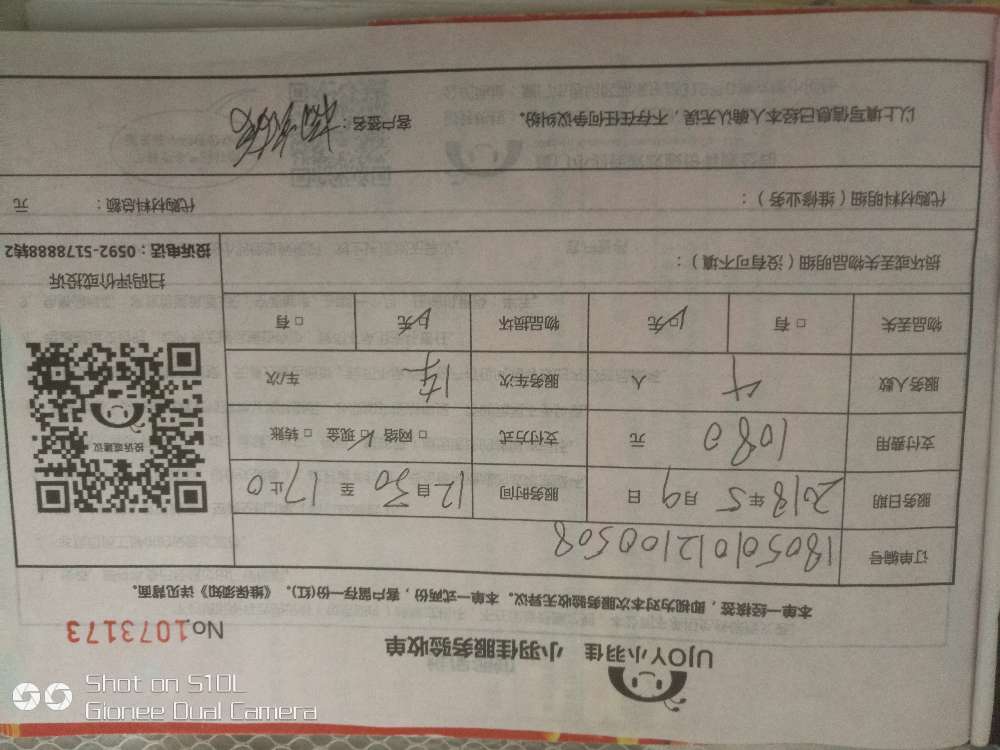 UJOY小羽佳 小羽佳服务验收单 No.1073173
本单一经接签，即视为对本次服务验收无异议。本单一式两份，客户留存一份(红)。《维保须知》详见背面。
订单编号 180501012100508
服务日期 2018年5月9日 服务时间 12自30至17止0
支付费用 1080元 支付方式 □网络 ☑现金 □转账
服务人数 4人 服务车次 车次
物品丢失 □有 ☑无 物品损坏 ☑无 □有
投诉或建议
扫码评价或投诉
投诉电话：0592-5178888转2
损坏或丢失物品明细（没有可不填）：
代购材料明细（维修业务）： 代购材料总额： 元
以上填写信息已经本人确认无误，不存在任何争议纠纷。 客户签名：
Shot on S10L
Gionee Dual Camera